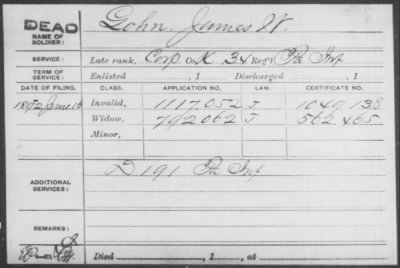 DEAD
NAME OF SOLDIER: Lohn, James W.
SERVICE: Late rank, Corp Co. K, 34 Reg't Pa Inf
TERM OF SERVICE: Enlisted , 1 Discharged , 1
DATE OF FILING. CLASS. APPLICATION NO. LAW. CERTIFICATE NO.
1892 June 16 Invalid, 1117052 J 1049138
Widow, 792062 J 562465
Minor,
ADDITIONAL SERVICES: D 191 Pa Inf
REMARKS:
Died , 1 , at